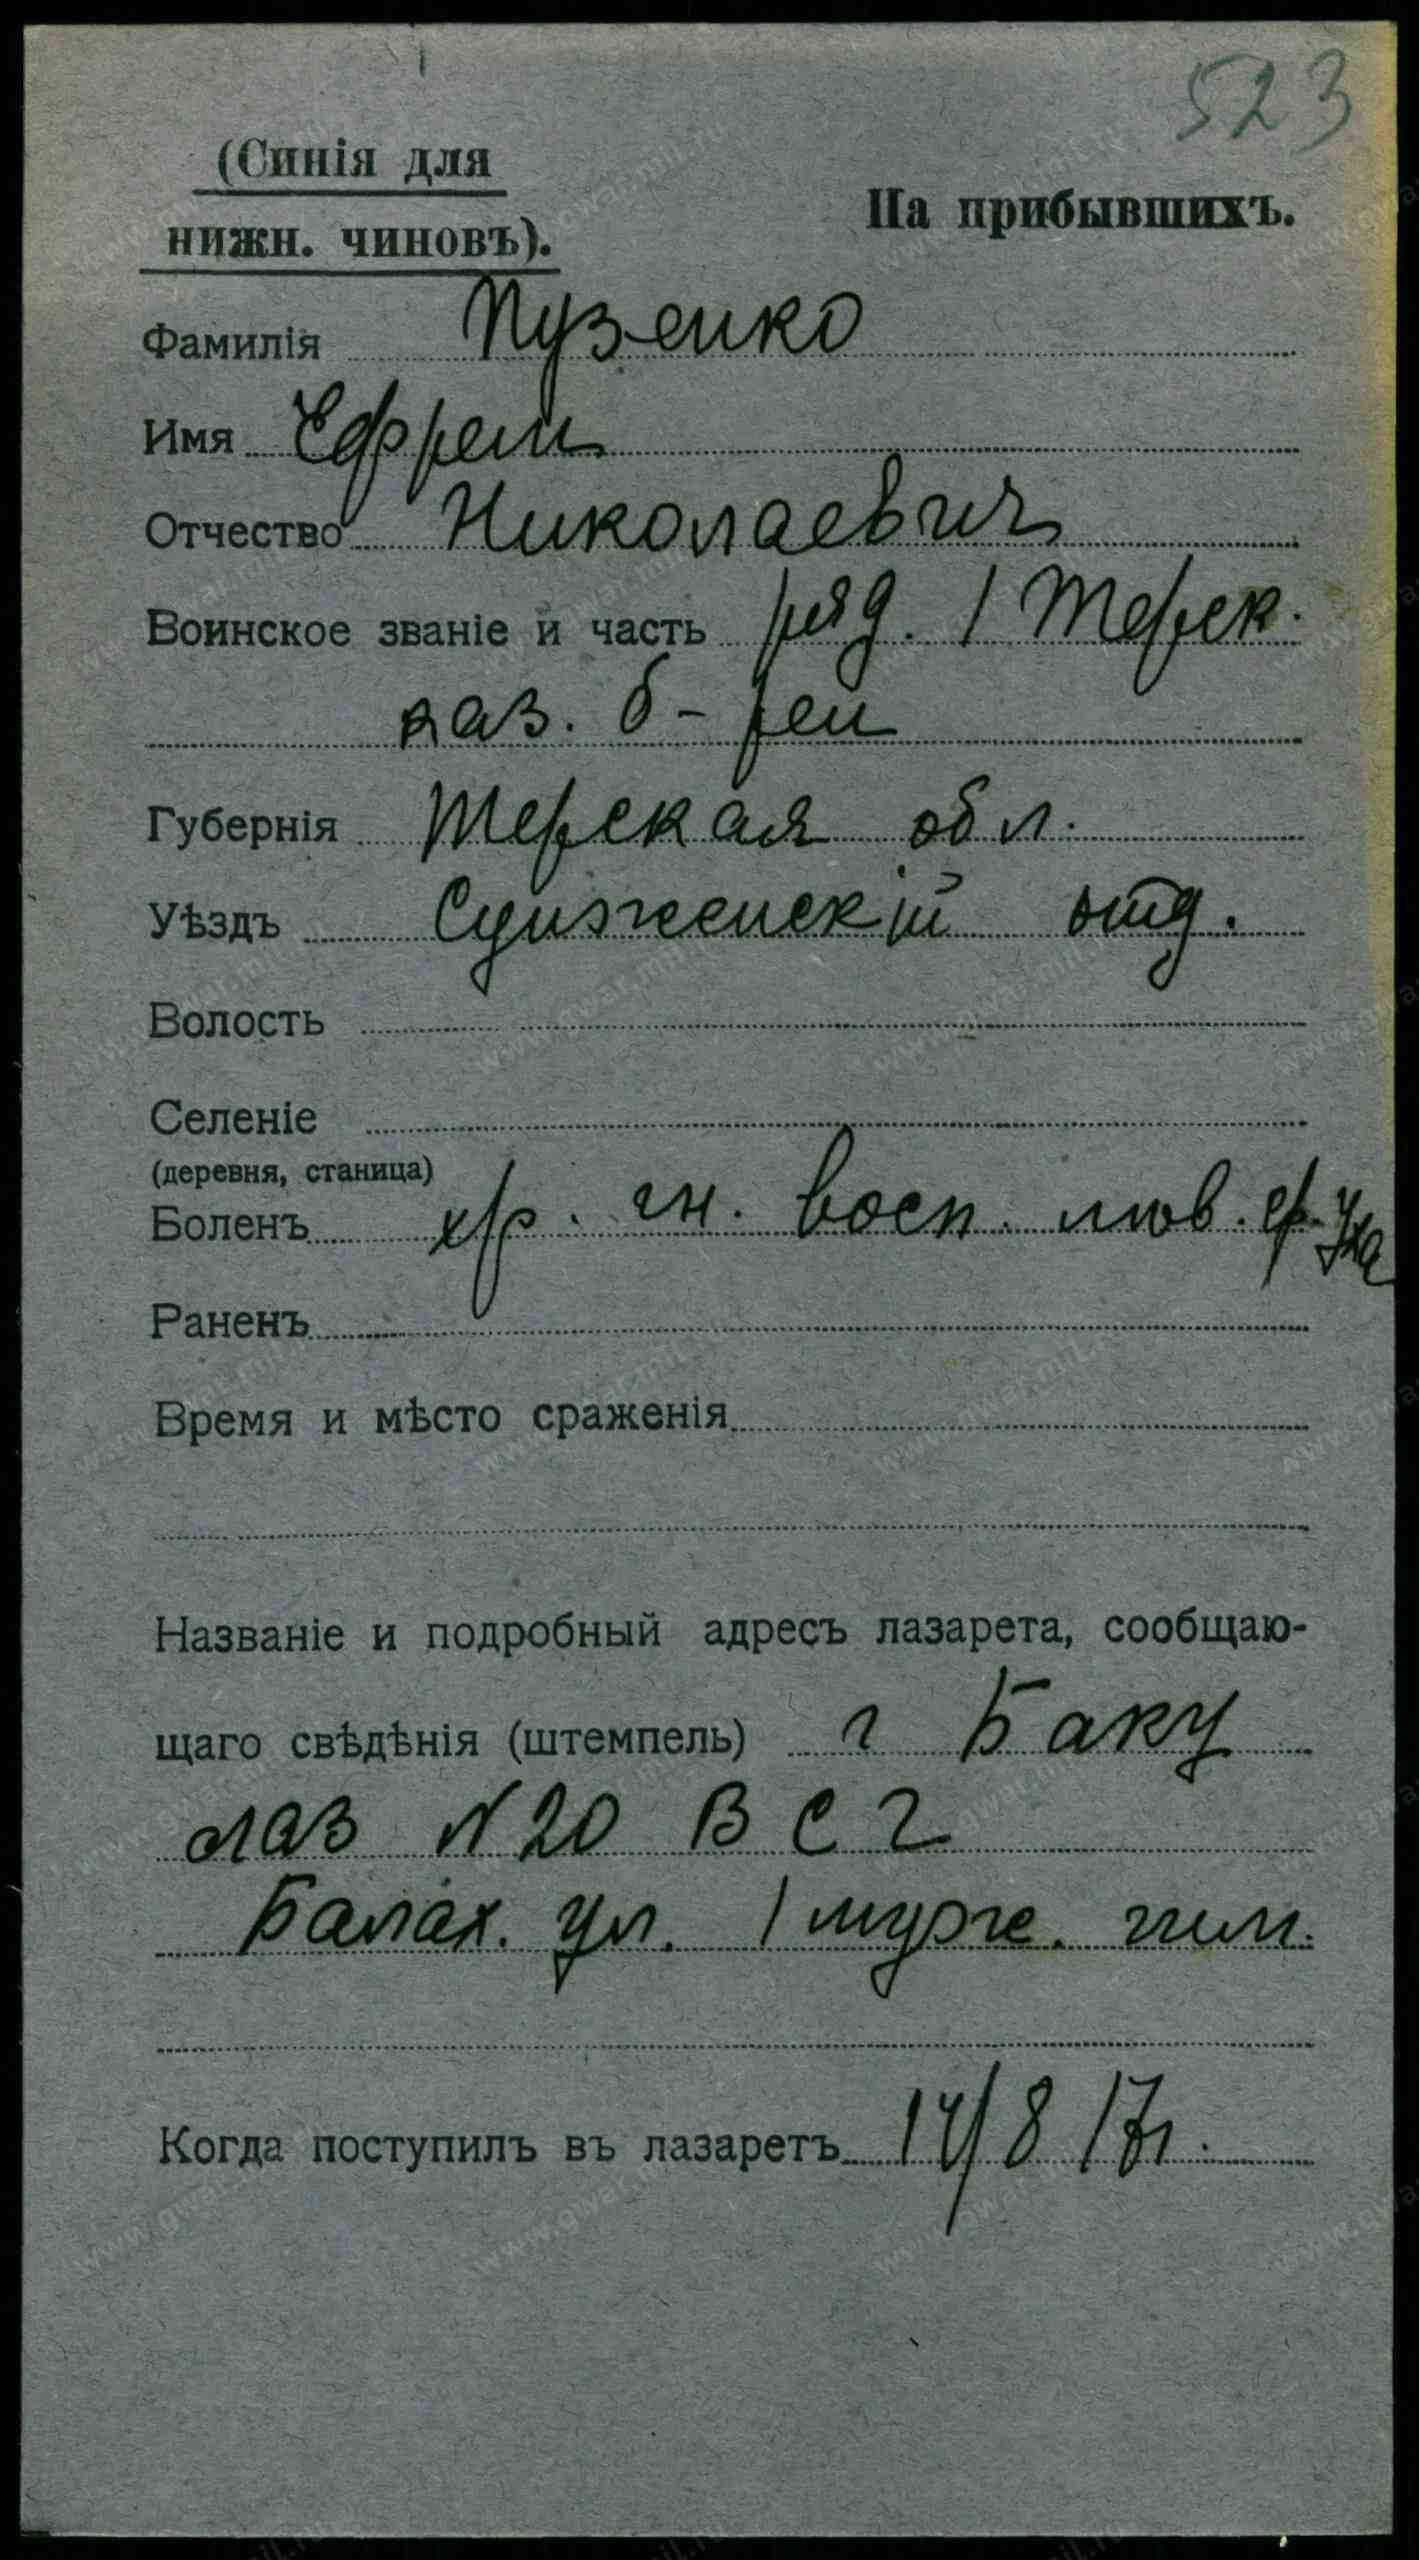 523
(Синія для
нижн. чиновъ).
На прибывшихъ.
Фамилія Пузенко
Имя Ефрем
Отчество Николаевич
Воинское званіе и часть ряд. 1 Терек.
каз. б-реи
Губернія Терская обл.
Уѣздъ Сунженскій отд.
Волость
Селеніе
(деревня, станица)
Боленъ хр. гн. восп. лев. ср. уха
Раненъ
Время и мѣсто сраженія
Названіе и подробный адресъ лазарета, сообщаю-
щаго свѣдѣнія (штемпель) г Баку
лаз N 20 В С Г
Балах. ул. 1 мужс. гим.
Когда поступилъ въ лазаретъ 14/8 17г.
www.gwar.mil.ru